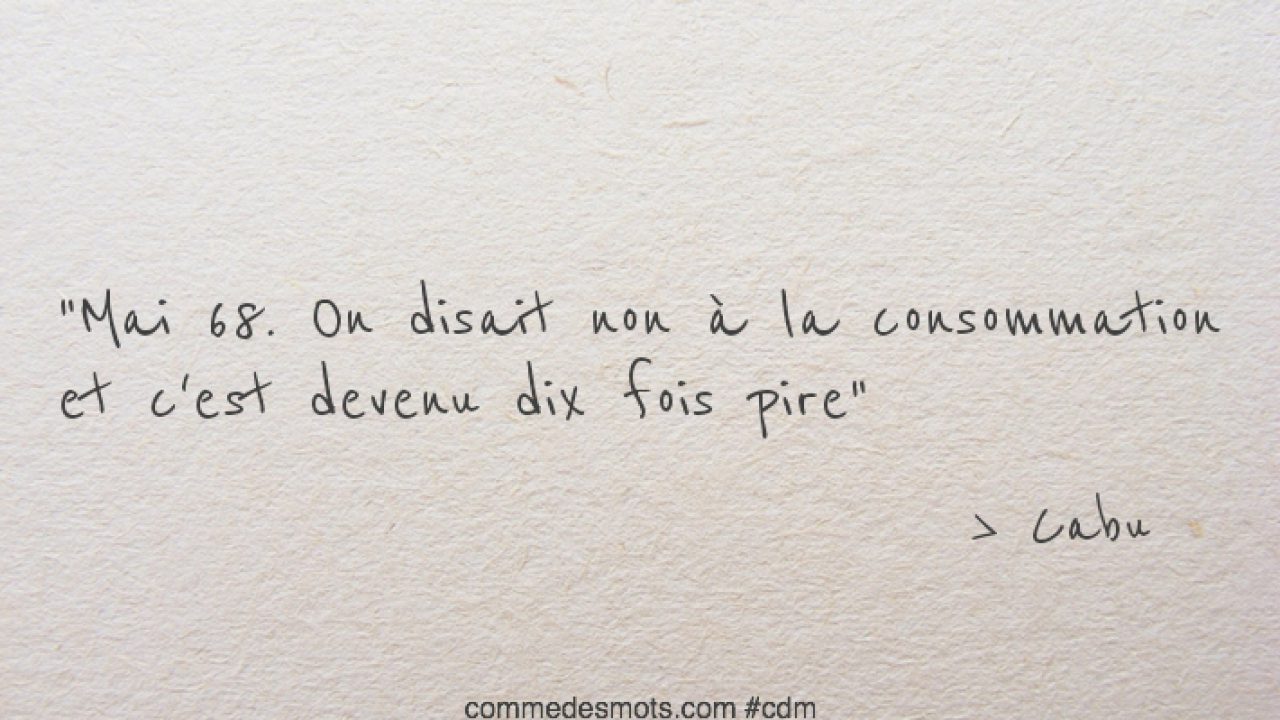 "Mai 68. On disait non à la consommation
et c'est devenu dix fois pire"
> Cabu
commedesmots.com #cdm